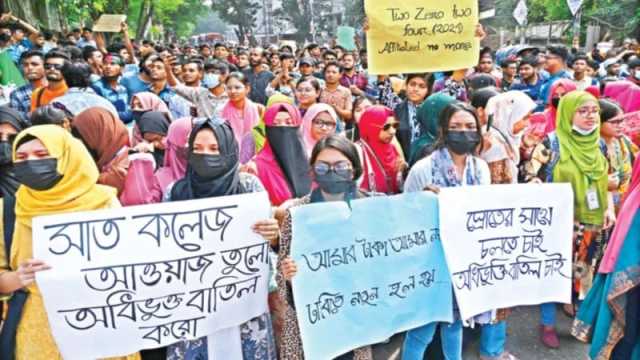 Two Zero two
four (2024)
Affiliated no more
সাত কলেজ
আওয়াজ তুলো
অধিভুক্ত বাতিল
করো
আমার টাকা আমার নয়
ঢাবির নতুন হল হয়...
স্রোতের সাথে
চলতে চাই
অধিভুক্তি বাতিল চাই